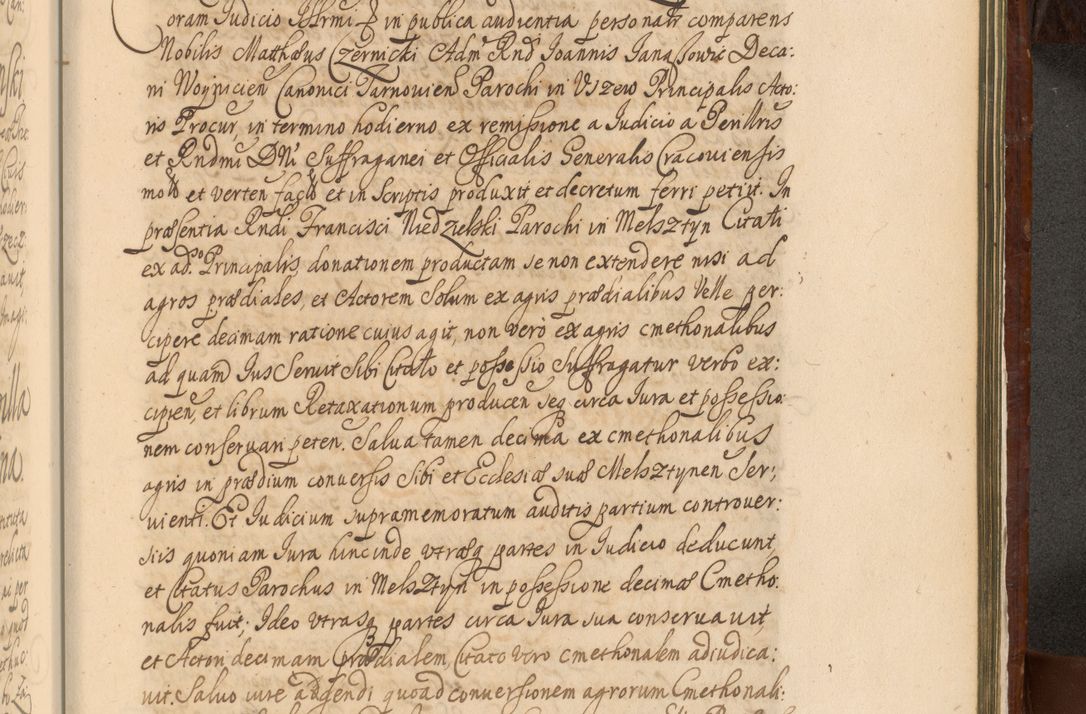 oram Iudicio Illrmi in publica audientia personalr comparens
Nobilis Matthæus Czernicki Adm Rnd Ioannis Iana Jowic Deca:
ni Woynicien Canonici Tarnovien Parochi in Vszew Principalis Acto:
ris Procur, in termino hodierno ex remissione a Iudicio a Perillris
et Rndmi DNi Suffraganei et Officialis Generalis Cracoviensis
et verten et in Scriptis produxit et decretum ferri petiit. In
præsentia Rndi Francisci Niedzielski Parochi in Melsztyn Citati
ex ad. Principalis donationem productam se non extendere nisi ad
agros prædiales, et Actorem Solum ex agris prædialibus Velle per:
cipere decimam ratione cuius agit, non vero ex agris cmethonalibus
ad quam Ius Servit Sibi Citato et possessio Suffragatur verbo ex:
cipien, et librum Retaxationum producen seq circa Iura et possessio:
nem conservari peten. Salva tamen decima ex cmethonalibus
agris in prædium conversis Sibi et Ecclesiæ suæ Melsztynen Ser:
vienti. Et Iudicium supramemoratum auditis partium controver:
siis quoniam Iura hincinde utræq partes in Iudicio deducunt
et Citatus Parochus in Melsztyn in possessione decimæ Cmetho:
nalis fuit; Ideo utrasq partes circa Iura sua conservavit,
et Actori decimam Prædialem, Citato vero cmethonalem adiudica:
vit. Salvo iure agendi quoad conversionem agrorum Cmethonali: